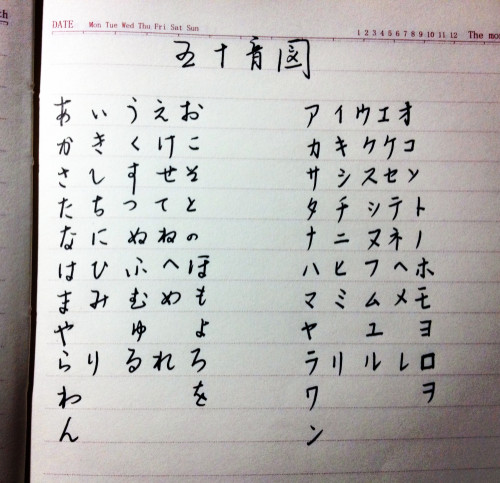 DATE Mon Tue Wed Thu Fri Sat Sun 1 2 3 4 5 6 7 8 9 10 11 12 The
五十音図
あいうえお アイウエオ
かきくけこ カキクケコ
さしすせそ サシスセソ
たちつてと タチシテト
なにぬねの ナニヌネノ
はひふへほ ハヒフヘホ
まみむめも マミムメモ
や ゆ よ ヤ ユ ヨ
らりるれろ ラリルレロ
わ を ワ ヲ
ん ン